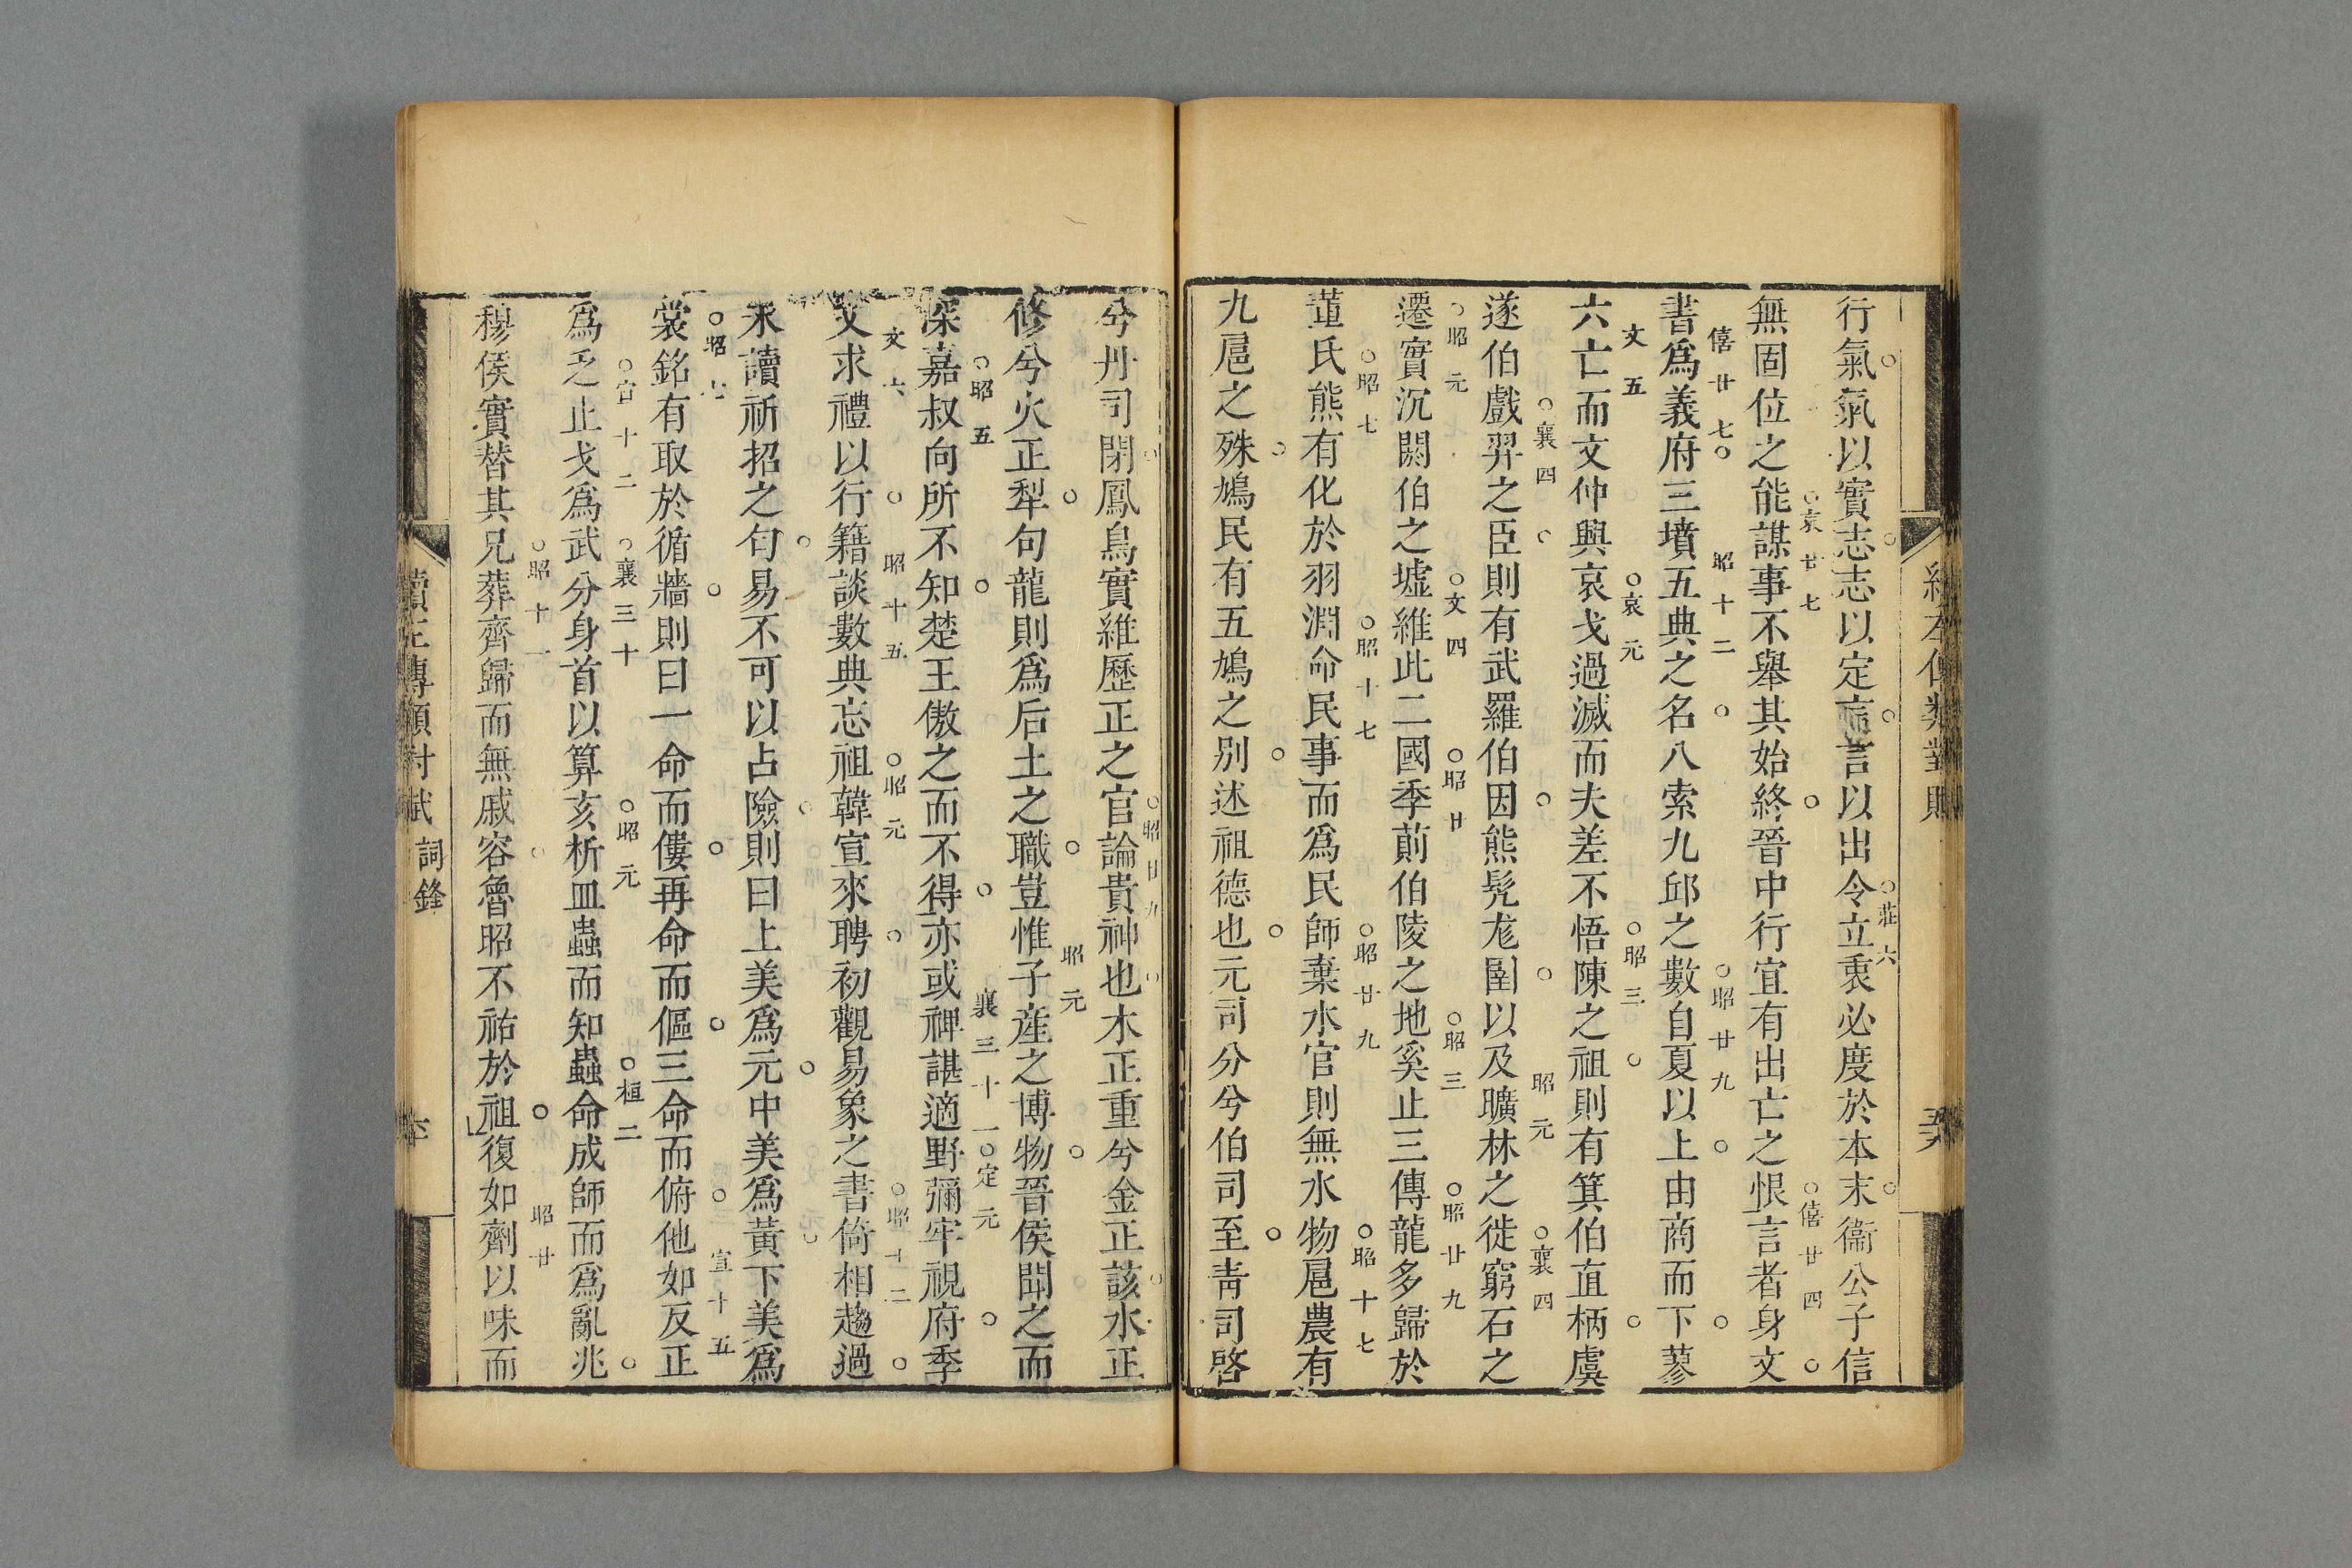 行氣氣以實志志以定言言以出令立衷必度於本末衞公子信
莊六
無固位之能謀事不舉其始終晉中行宜有出亡之恨言者身文
哀廿七
僖廿四
書爲義府三墳五典之名八索九邱之數自夏以上由商而下蓼
僖廿七
昭十二
昭廿九
六亡而文仲興哀戈過滅而夫差不悟陳之祖則有箕伯直柄虞
文五
哀元
昭三
遂伯戲羿之臣則有武羅伯因熊髡尨圉以及曠林之徙窮石之
襄四
昭元
襄四
遷實沉閼伯之墟維此二國季萴伯陵之地奚止三傳龍多歸於
昭元
文四
昭廿
昭三
昭廿九
董氏熊有化於羽淵命民事而爲民師棄水官則無水物扈農有
昭七
昭十七
昭廿九
昭十七
九扈之殊鳩民有五鳩之别述祖德也元司分兮伯司至靑司啓
兮丹司閉鳳鳥實維歷正之官論貴神也木正重兮金正該水正
昭廿九
修兮火正犁句龍則爲后土之職豈惟子産之博物晉侯聞之而
昭元
深嘉叔向所不知楚王傲之而不得亦或裨諶適野彌牢視府季
昭五
襄三十一
定元
文求禮以行籍談數典忘祖韓宣來聘初觀易象之書倚相趨過
文六
昭十五
昭元
昭十二
未讀祈招之句易不可以占險則曰上美爲元中美爲黃下美爲
裳銘有取於循牆則曰一命而僂再命而傴三命而俯他如反正
昭七
宣十五
爲乏止戈爲武分身首以算亥析皿蟲而知蠱命成師而爲亂兆
宣十二
襄三十
昭元
桓二
穆侯實替其兄葬齊歸而無慼容魯昭不祐於祖復如劑以味而
昭十一
昭廿
續左傳類對賦
詞鋒